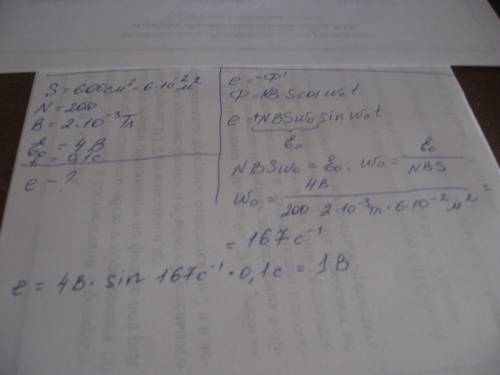 S = 600 см² = 6·10⁻² м²
N = 200
B = 2·10⁻³ Тл
ℰ₀ = 4 В
t = 0,1 с
e - ?
e = -Ф'
Ф = NBS cos ω₀ t
e = +NBSω₀ sin ω₀ t
ℰ₀
NBSω₀ = ℰ₀. ω₀ = ℰ₀/NBS
ω₀ = 4В/200·2·10⁻³Тл·6·10⁻² м² =
= 167 с⁻¹
e = 4В· sin 167с⁻¹·0,1с = 1В